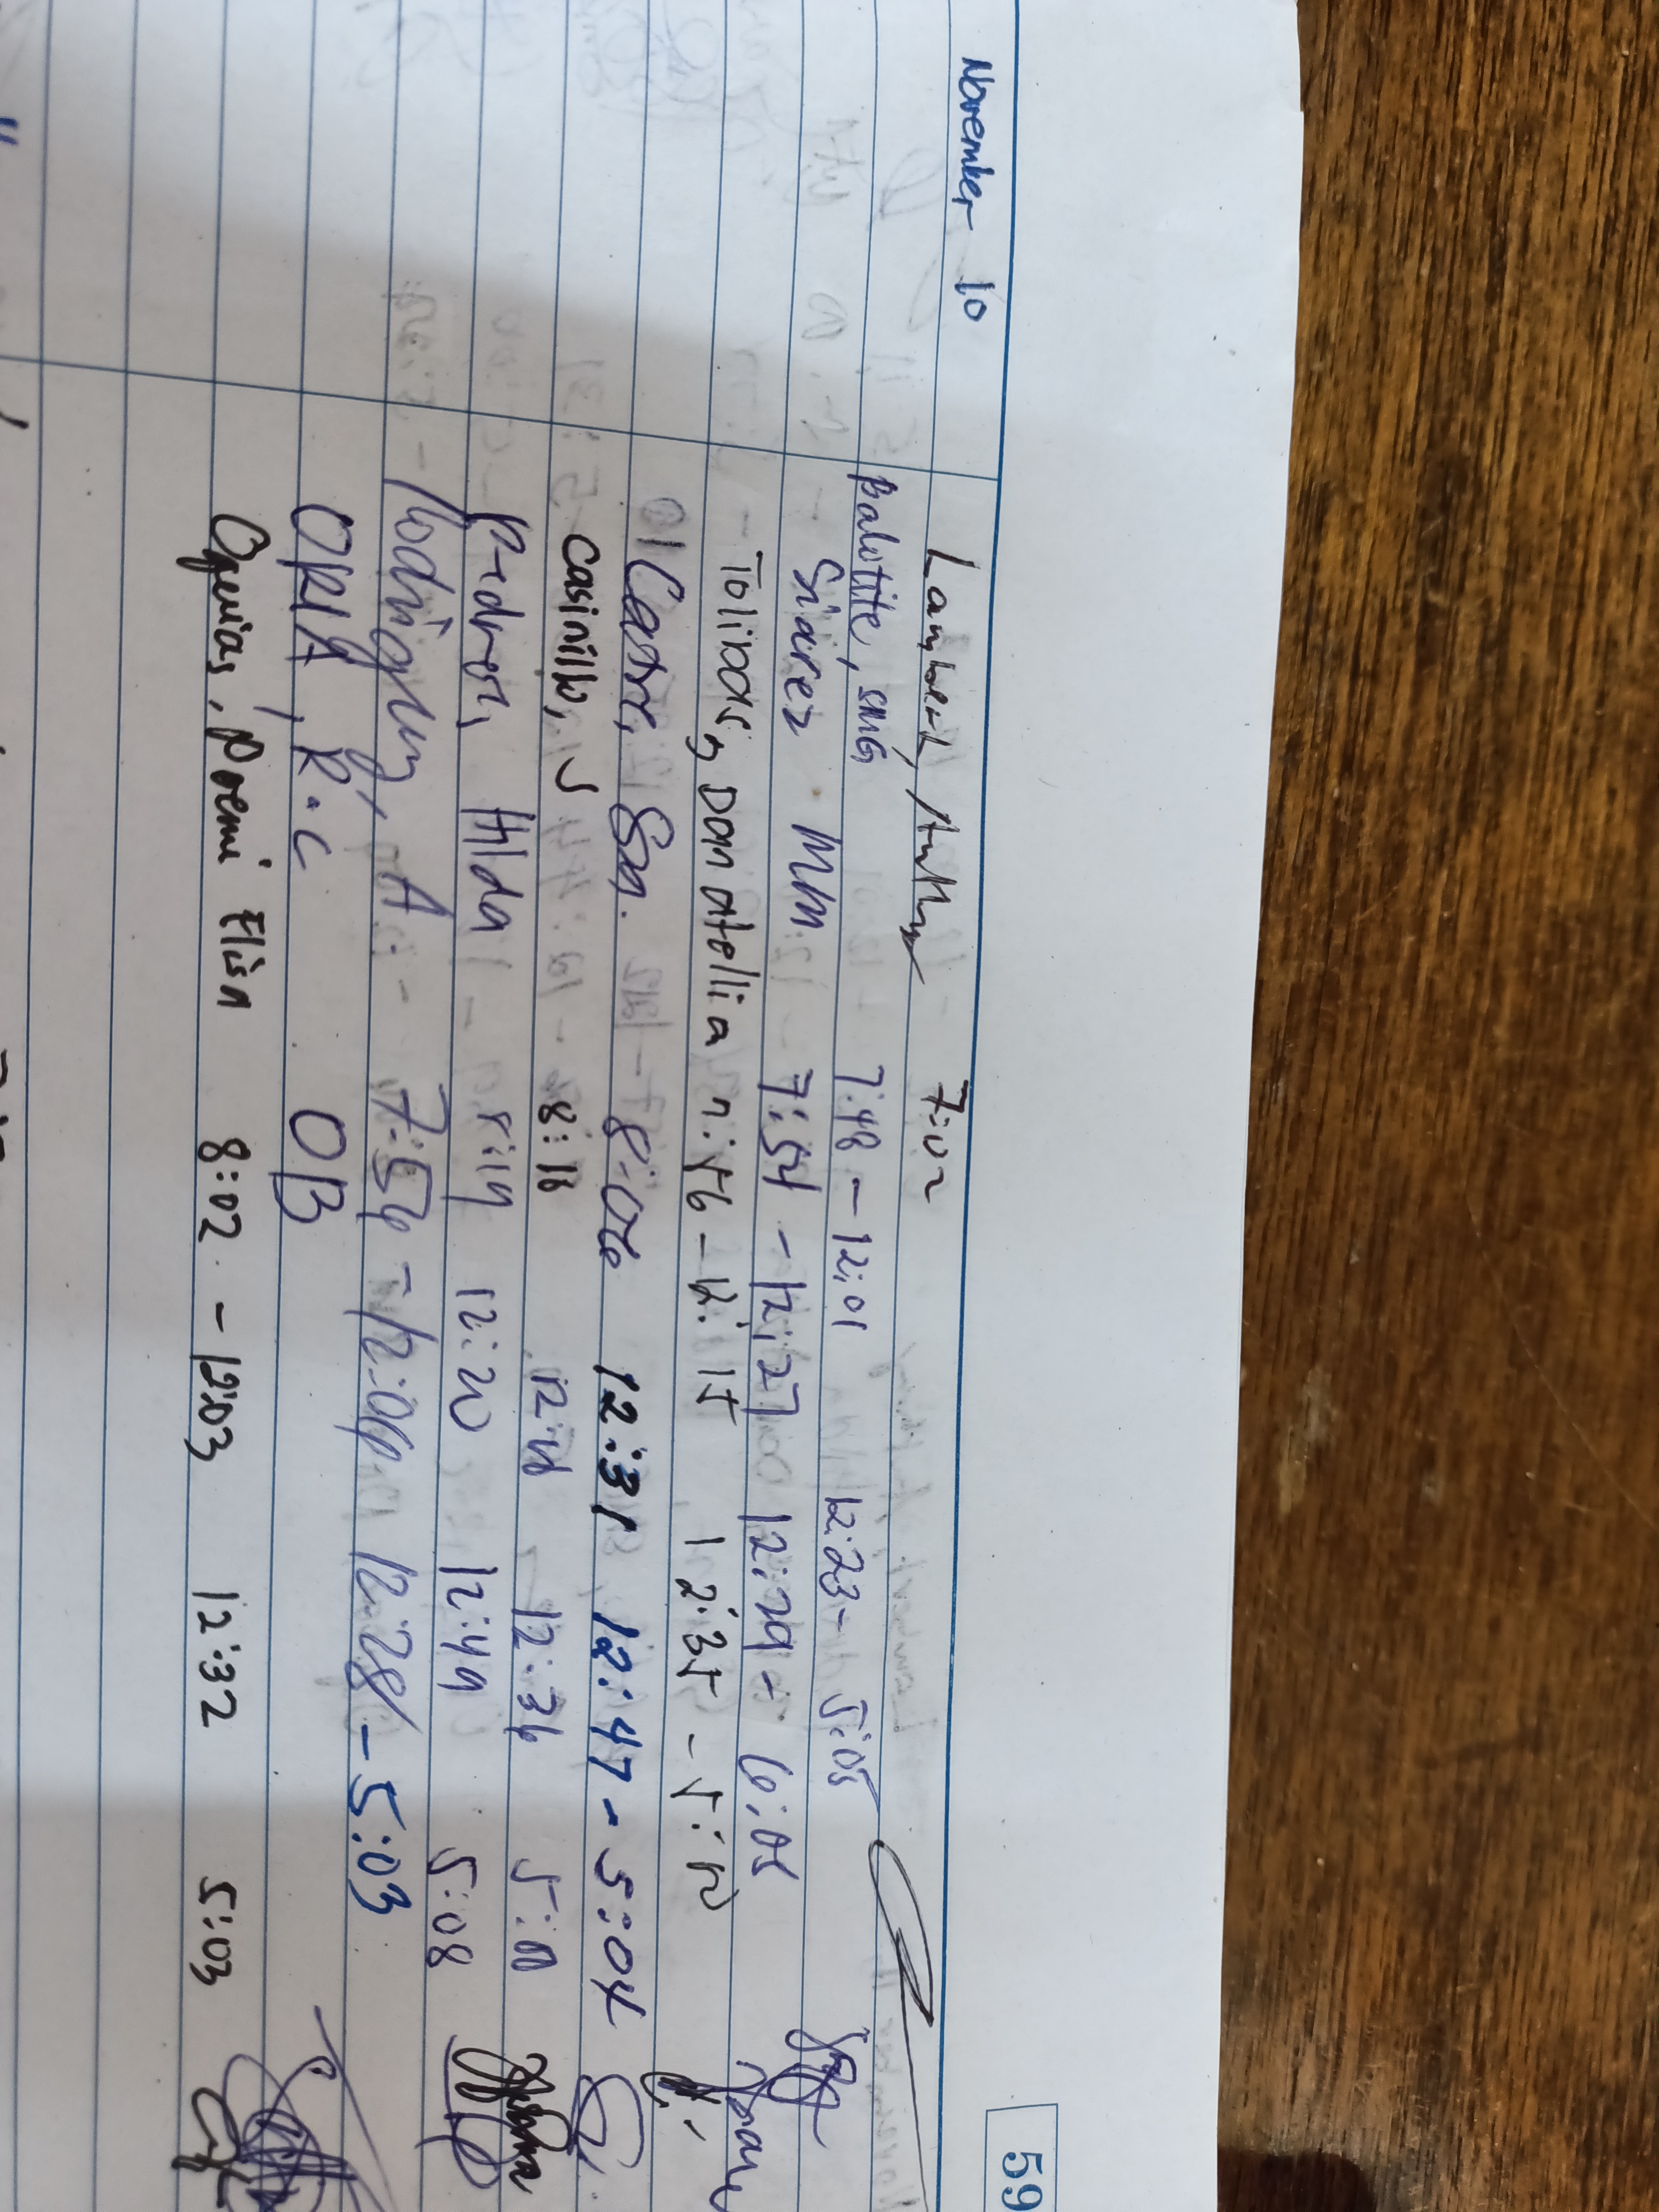 59
November 10
Lambert, 7:02
Balotite, SMG 7:48 - 12:01 12:23 - 5:05
Siarez MM 7:54 - 12:27 12:29 - 6:05
Tolibas, Dan Atellia 7:56 - 12:15 12:35 - 5:10
Castr, San. 8:06 12:31 12:47 - 5:04
Casinillo, J 8:18 12:18 12:36 5:11
Pedrera, Hilda 8:19 12:20 12:49 5:08
Rodriguez, A. - 7:54 - 12:06 12:28 - 5:03
ORIA, R.C OB
Oquias, Doemi Elisa 8:02 - 12:03 12:32 5:03